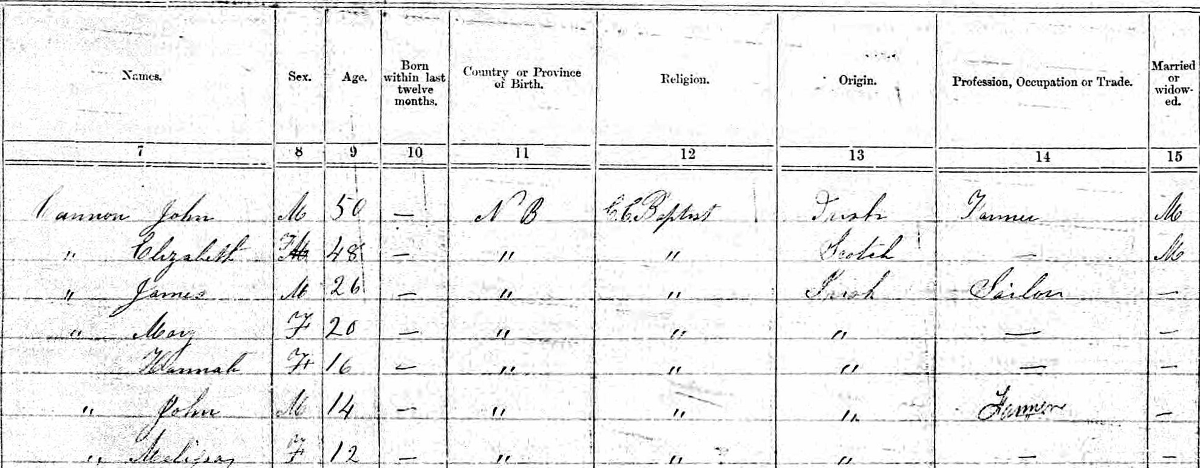 Names. Sex. Age. Born within last twelve months. Country or Province of Birth. Religion. Origin. Profession, Occupation or Trade. Married or widow-ed.
7 8 9 10 11 12 13 14 15
Cannon John M 50 — N B Baptist Irish Farmer M
" Elizabeth F 48 — " " Scotch — M
" James M 26 — " " Irish Sailor —
" Mary F 20 — " " " — —
Hannah F 16 — " " " — —
" John M 14 — " " " Farmer —
" F 12 — " " " — —